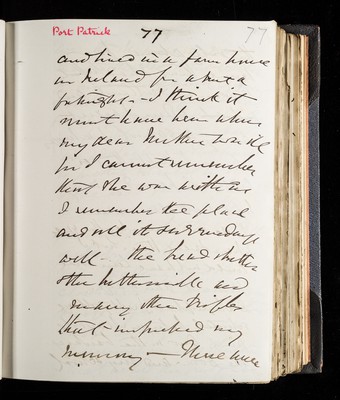 Port Patrick
77
77
and lived in a farm house
in Ireland for about a
fortnight - I think it
must have been when
my dear Mother was ill
for I cannot remember
that she was with us
I remember the place
and all its surroundings
well - the
the buttermilk and
many other trifles
that impressed my
memory - There were